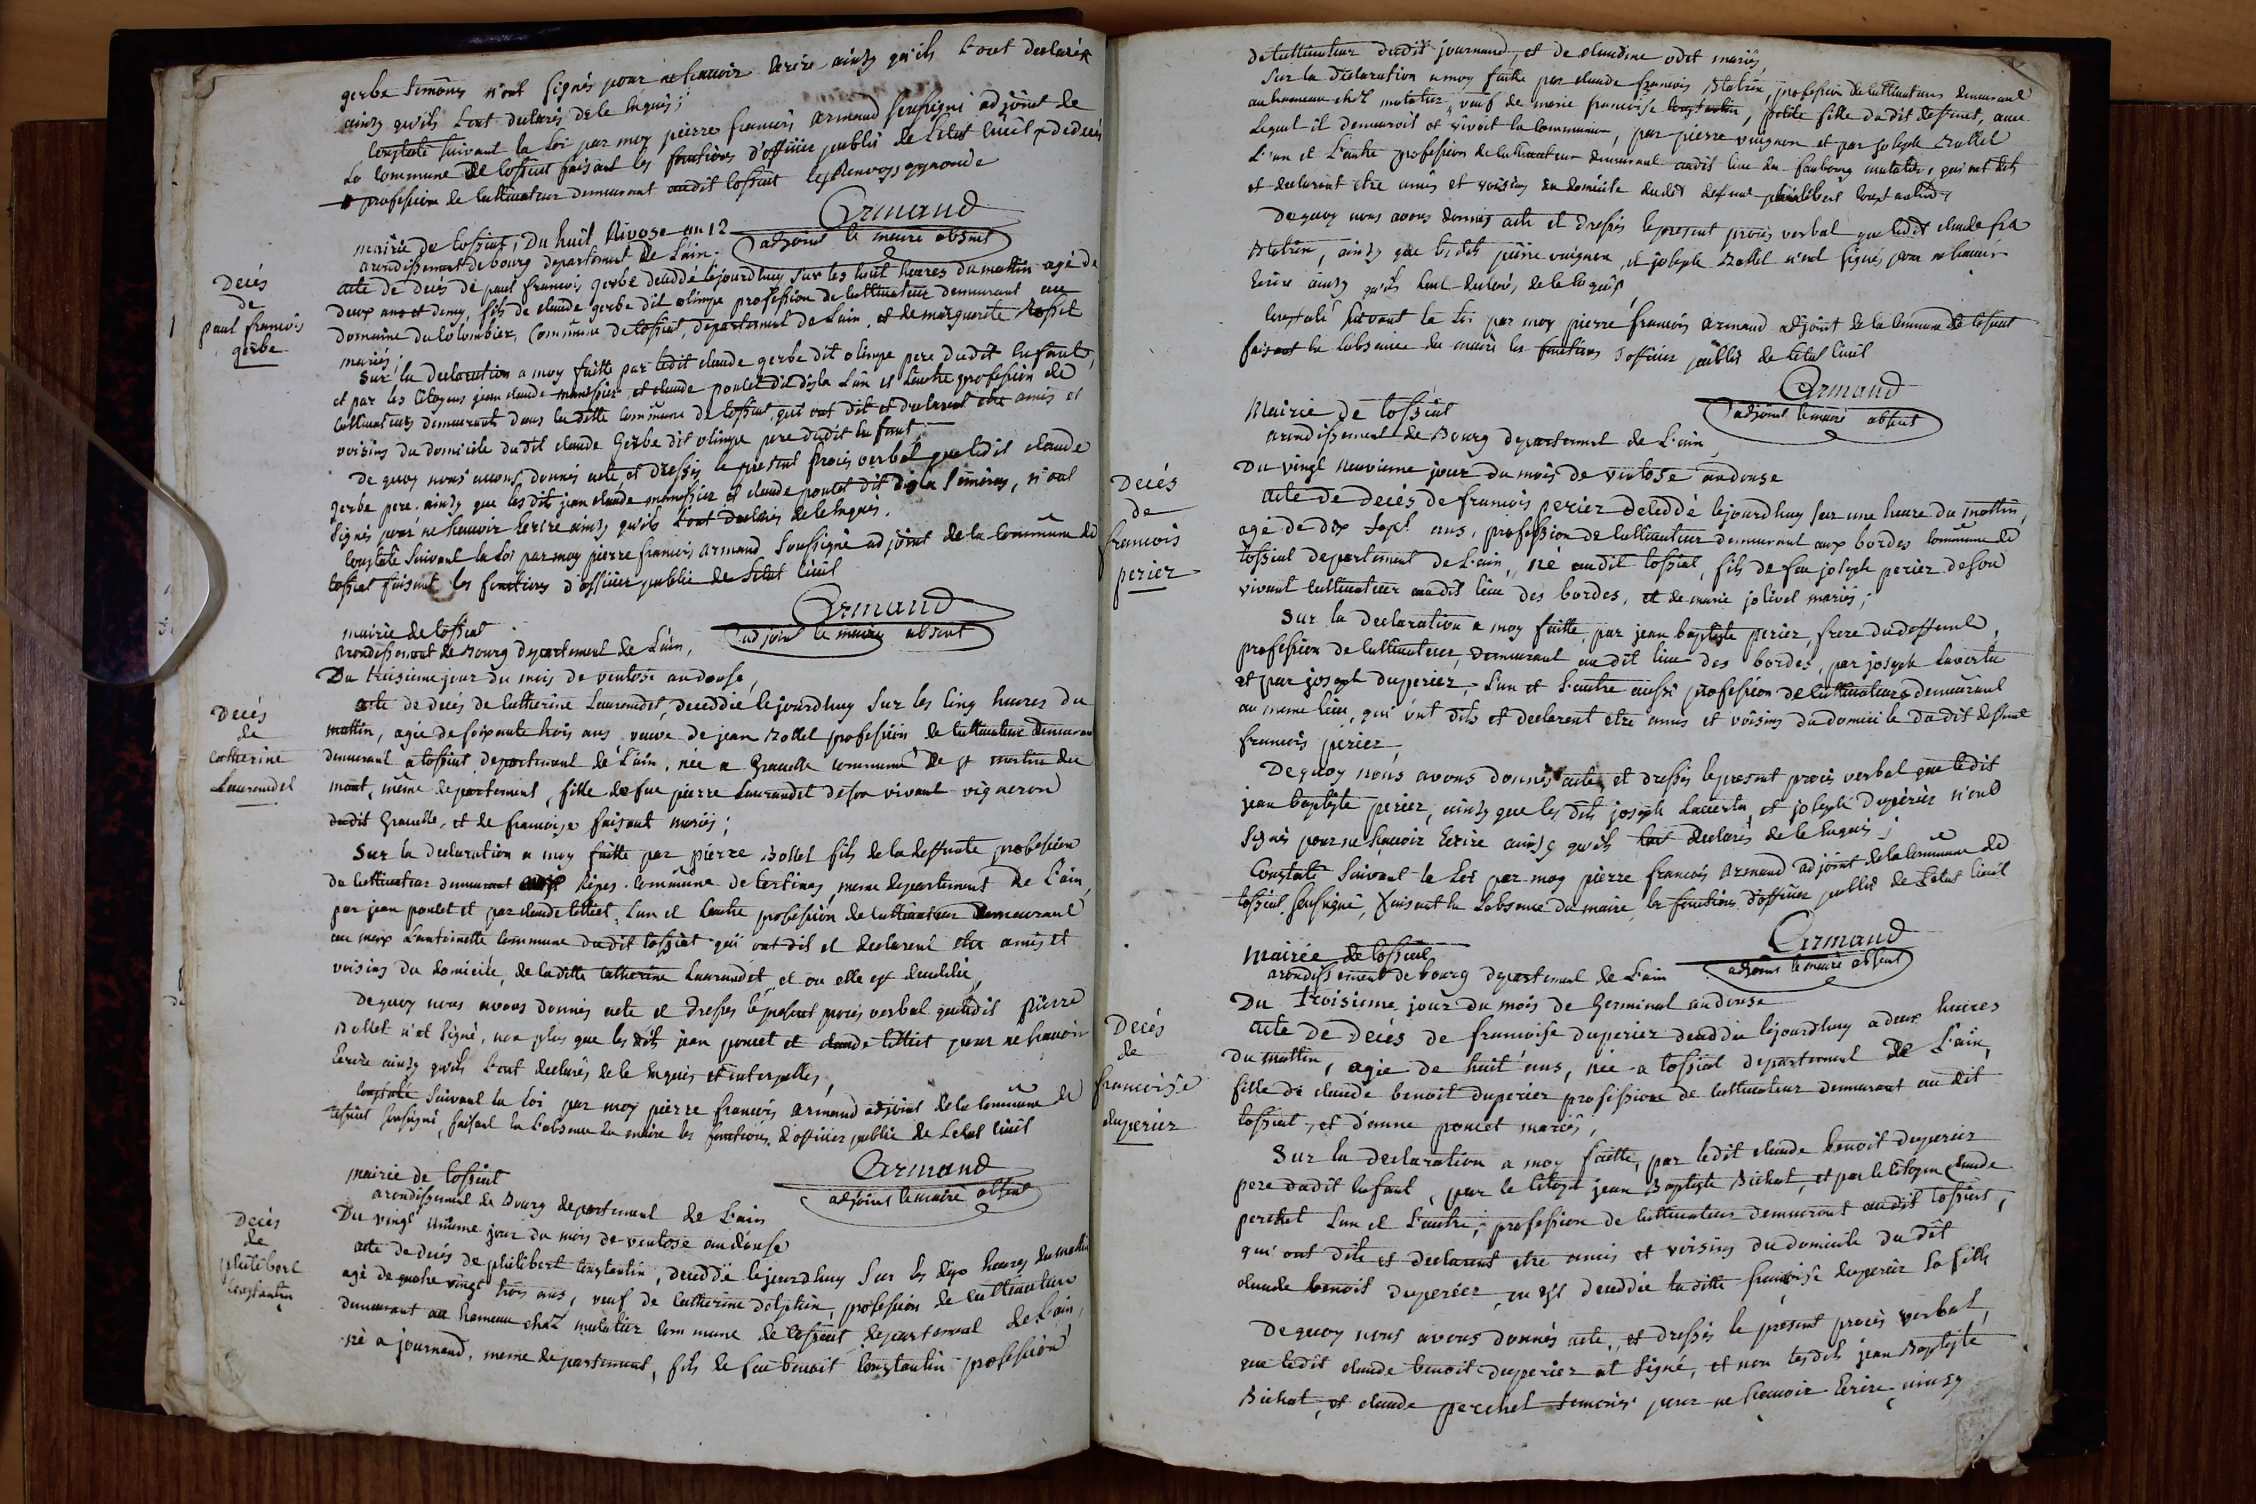 gerbe temoins n'ont signés pour ne scavoir ecrire ainsy qu'ils l'ont declarés
ainsy qu'ils l'ont declarés de le enquis;
Constaté suivant la loi par moy pierre francois armand soussigné adjoint de
la commune de tossiat faisant les fonctions d'officier public de letat civil
profession de cultivateur demeurant audit tossiat
Armand
adjoint le maire absent
mairie de tossiat, Du huit Nivose an 12
arondissement de bourg departement de Lain.
Decés
de
paul francois
gerbe
acte de decés de paul francois gerbe deceddé lejourdhuy sur les huit heures du mattin agé de
deux ans et demy, fils de claude gerbe dit olimpe profession de cultivateur demeurant au
domaine du colombier, Commune de tossiat, departement de Lain, et de marguerite rosset
mariés;
Sur la declaration a moy faitte par ledit claude gerbe dit olimpe pere dudit enfant,
et par les citoyens jean claude manessier, et claude poncet dit L'un et Lautre profession de
Cultivateurs demeurants dans la ditte Commune de tossiat, qui ont dit et declarent etre amis et
voisins du domicile dudit claude Gerbe dit olimpe pere dudit enfant
De quoy nous avons donnés acte, et dressés le present procés verbal que ledit claude
gerbe pere, ainsy que les dits jean claude manessier et claude poncet dit temoins, n'ont
signés pour ne scavoir Ecrire ainsy qu'ils l'ont declarés de le enquis.
Constaté suivant la Loi par moy pierre francois armand soussigné adjoint de la commune de
tossiat faisant les fonctions d'officier public de letat civil
Armand
adjoint le maire absent
mairie de tossiat
arondissement de Bourg departement de Lain,
Du troisieme jour du mois de ventose an douse,
Decés
de
catherine
Laurandet
acte de decés de Catherine Laurandet, deceddée lejourdhuy sur les cinq heures du
mattin, agée de soixante trois ans veuve de jean Bollet profession de cultivateur demeurant
demeurant a tossiat departement de Lain, née a Gravelle commune de st martin du
mont, même departement, fille de feu pierre Laurandet de son vivant vigneron
dudit Gravelle, et de francoise faisant mariés;
Sur la declaration a moy faitte par pierre Bollet fils de la deffunte profession
de cultivateur demeurant Ripes Commune de Certines, meme departement de L'ain,
par jean poncet et par claude tissiet, L'un et Lautre profession de cultivateur demeurant
au maix Lantoinette Commune dudit tossiat qui ont dit et declarent etre amis et
voisins du domicile de laditte Catherine Laurandet, et ou elle est deceddée,
De quoy nous avons donnés acte et dressés le present procés verbal que ledit pierre
Bollet n'at signé, non plus que les dits jean poncet et claude tissiet pour ne scavoir
Ecrire ainsy qu'ils l'ont declarés de le enquis et interpellés,
Constaté suivant la loi par moy pierre francois armand adjoint de la commune de
tossiat soussigné, faisant en L'absence du maire les fonctions d'officier public de Letat civil
Armand
adjoint le maire absent
mairie de tossiat
arondissement de Bourg departement de L'ain
Du vingt unieme jour du mois de ventose an douse
Decés
de
philibert
Constantin
acte de decés de philibert Constantin, deceddé lejourdhuy sur les dix heures du mattin
agé de quatre vingt trois ans, veuf de Catherine delphin, profession de cultivateur
demeurant au hameau chez mulatier commune de tossiat departement de L'ain,
né a journand, meme departement, fils de feu benoit Constantin profession
de cultivateur dudit journand, et de claudine odet mariés,
Sur la declaration a moy faitte par claude francois Blatrin, profession de cultivateur demeurant
au hameau chez mulatier, veuf de marie francoise Constantin, petite fille dudit deffunt, avec
Lequel il demeuroit et vivoit en commun, par pierre vuignon et par joseph Bollet
L'un et L'autre profession de cultivateur demeurant audit lieu du faubourg mulatier, qui ont dit
et declarent etre amis et voisins du domicile dudit deffunt philibert Constantin;
De quoy nous avons donnés acte et dressés le present procés verbal que ledit claude fra
Blatrin, ainsy que les dits pierre vuignon, et joseph Bollet n'ont signés pour ne scavoir
Ecrire ainsy qu'ils l'ont declaré, de le enquis
Constaté suivant la Loi par moy pierre francois armand adjoint de la commune de tossiat
faisant en Labsence du maire les fonctions d'officier public de letat civil
Armand
adjoint le maire absent
Mairie de tossiat
arondissement de Bourg departement de L'ain
Du vingt neuvieme jour du mois de ventose an douse
Decés
de
francois
perier
acte de decés de francois perier deceddé lejourdhuy sur une heure du mattin,
agé de dix sept ans, profession de cultivateur demeurant aux bordes commune de
tossiat departement de L'ain, né audit tossiat, fils de feu joseph perier de son
vivant cultivateur audit lieu des bordes, et de marie jolivet mariés;
Sur la declaration a moy faitte, par jean baptiste perier, frere dudeffunt,
profession de cultivateur, demeurant au dit lieu des bordes, par joseph Laverta
et par joseph duperier, L'un et L'autre aussi profession de cultivateurs demeurant
au meme lieu, qui ont dits et declarent etre amis et voisins du domicile dudit deffunt
francois perier
De quoy nous avons donnés acte, et dressés le present procés verbal que ledit
jean baptiste perier, ainsy que les dits joseph Laverta, et joseph duperier n'ont
signés pour ne scavoir Ecrire ainsy qu'ils l'ont declarés de le enquis;
Constaté suivant la Loi par moy pierre francois armand adjoint de la commune de
tossiat soussigné, faisant en Labsence du maire, les fonctions d'officier public de Letat civil
Armand
adjoint le maire absent
Mairie de tossiat
arondissement de bourg departement de L'ain
Du troisieme jour du mois de Germinal an douse
Decés
de
francoise
duperier
acte de decés de francoise duperier deceddée lejourdhuy a deux heures
du mattin, agée de huit ans, née a tossiat departement de L'ain,
fille de claude benoit duperier profession de cultivateur demeurant au dit
tossiat, et d'anne poncet mariés,
Sur la declaration a moy faitte, par ledit claude benoit duperier
pere dudit enfant, par le citoyen jean Baptiste Bichat, et par le citoyen claude
perchet L'un et L'autre, profession de cultivateur demeurant audit tossiat,
qui ont dits et declarent etre amis et voisins du domicile dudit
claude benoit duperier, ou est deceddée laditte francoise duperier sa fille
De quoy nous avons donnés acte, et dressés le present procés verbal,
que ledit claude benoit duperier at signé, et non lesdits jean Baptiste
Bichat, et claude perchet temoins pour ne scavoir Ecrire ainsy